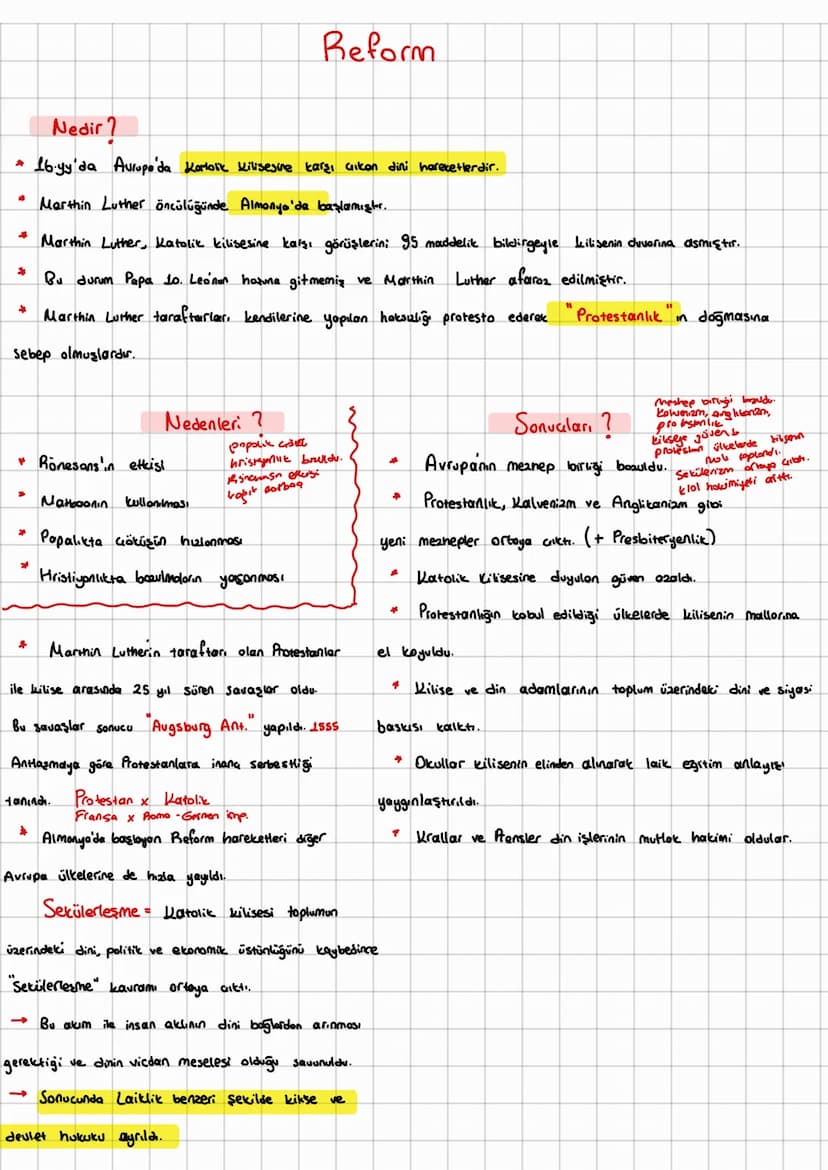 Reform
Nedir?
* 16.yy'da Avrupa'da Katolik kilisesine karşı çıkan dini hareketlerdir.
* Marthin Luther öncülüğünde Almanya'da başlamıştır.
* Marthin Luther, Katolik kilisesine karşı görüşlerini 95 maddelik bildirgeyle kilisenin duvarına asmıştır.
* Bu durum Papa 10. Leo'nun hoşuna gitmemiş ve Marthin Luther afaroz edilmiştir.
* Marthin Luther taraftarları kendilerine yapılan haksızlığı protesto ederek "Protestanlık"ın doğmasına
sebep olmuşlardır.
Nedenleri?
papalık çöktü
hristiyanlık bozuldu.
Rönesansın etkisi
kağıt matbaa
* Rönesans'ın etkisi
* Matbaanın kullanılması
* Papalıkta çöküşün hızlanması
* Hristiyanlıkta bozulmaların yaşanması
* Marthin Lutherin taraftarı olan Protestanlar
ile kilise arasında 25 yıl süren savaşlar oldu.
Bu savaşlar sonucu "Augsburg Ant." yapıldı. 1555
Antlaşmaya göre Protestanlara inanç serbestliği
tanındı. Protestan x Katolik
Fransa x Roma-Germen imp.
* Almanya'da başlayan Reform hareketleri diğer
Avrupa ülkelerine de hızla yayıldı.
Sekülerleşme = Katolik kilisesi toplumun
üzerindeki dini, politik ve ekonomik üstünlüğünü kaybedince
"Sekülerleşme" kavramı ortaya çıktı.
→ Bu akım ile insan aklının dini bağlardan arınması
gerektiği ve dinin vicdan meselesi olduğu savunuldu.
→ Sonucunda Laiklik benzeri şekilde kilise ve
devlet hukuku ayrıldı.
Sonuçları?
mezhep birliği bozuldu.
kalvenizm, anglikanizm,
protestanlık
kiliseye güven ↓
protestan ülkelerde kilisenin
malı toplandı.
Sekülerizm ortaya çıktı.
kral hakimiyeti arttı.
* Avrupanın mezhep birliği bozuldu.
* Protestanlık, Kalvenizm ve Anglikanizm gibi
yeni mezhepler ortaya çıktı. (+ Presbiteryenlik)
* Katolik Kilisesine duyulan güven azaldı.
* Protestanlığın kabul edildiği ülkelerde kilisenin mallarına
el koyuldu.
* Kilise ve din adamlarının toplum üzerindeki dini ve siyasi
baskısı kalktı.
* Okullar kilisenin elinden alınarak laik eğitim anlayışı
yaygınlaştırıldı.
* Krallar ve Prensler din işlerinin mutlak hakimi oldular.